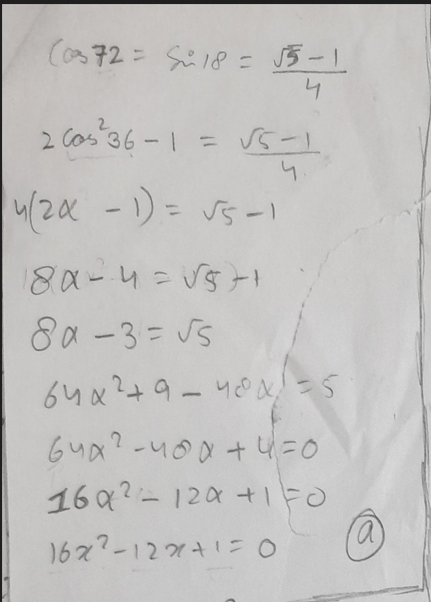 Cos72 = Sin18 = (√5 - 1)/4
2Cos²36 - 1 = (√5 - 1)/4
4(2α - 1) = √5 - 1
8α - 4 = √5 - 1
8α - 3 = √5
64α² + 9 - 48α = 5
64α² - 48α + 4 = 0
16α² - 12α + 1 = 0
16x² - 12x + 1 = 0 (a)